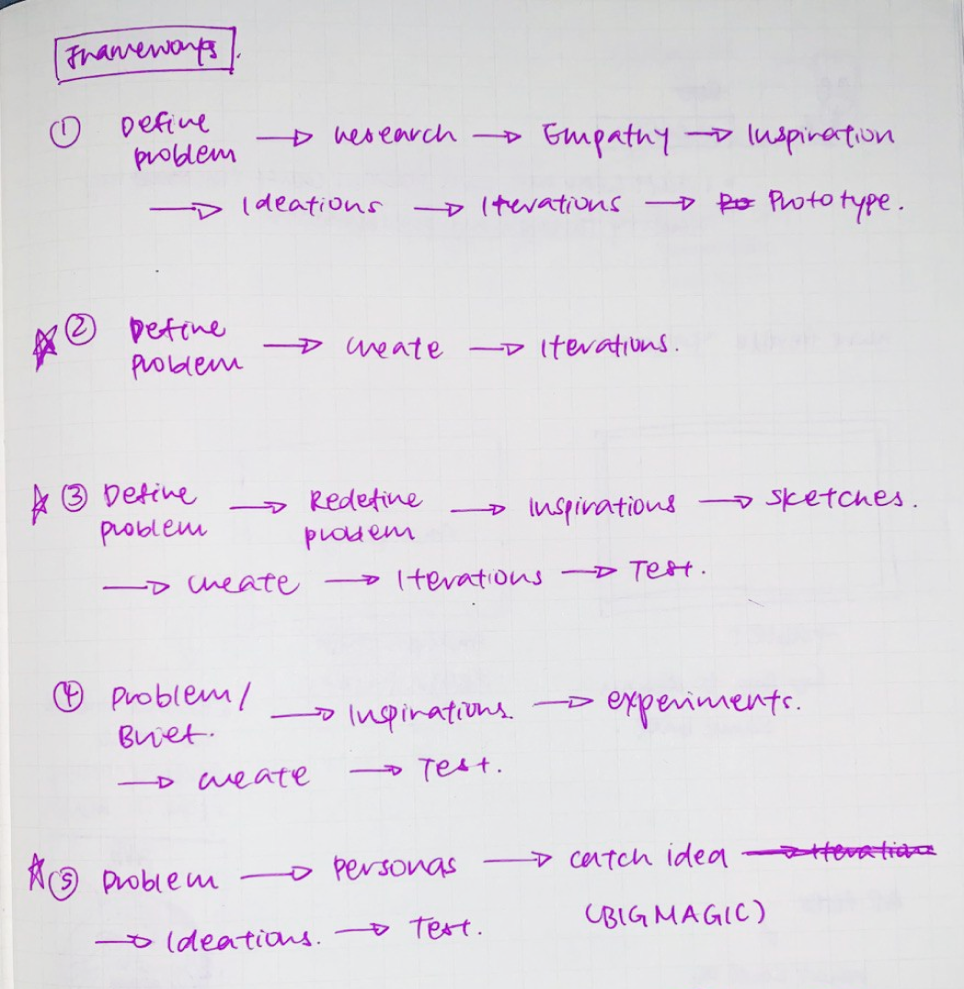 Frameworks.
① Define problem → research → Empathy → Inspiration
→ Ideations → Iterations → Prototype.
② Define problem → create → Iterations.
③ Define problem → Redefine problem → Inspirations → sketches.
→ create → Iterations → Test.
④ Problem/ Brief. → Inspirations. → experiments.
→ create → Test.
⑤ Problem → Personas → catch idea → Iterations
(BIG MAGIC)
→ Ideations. → Test.